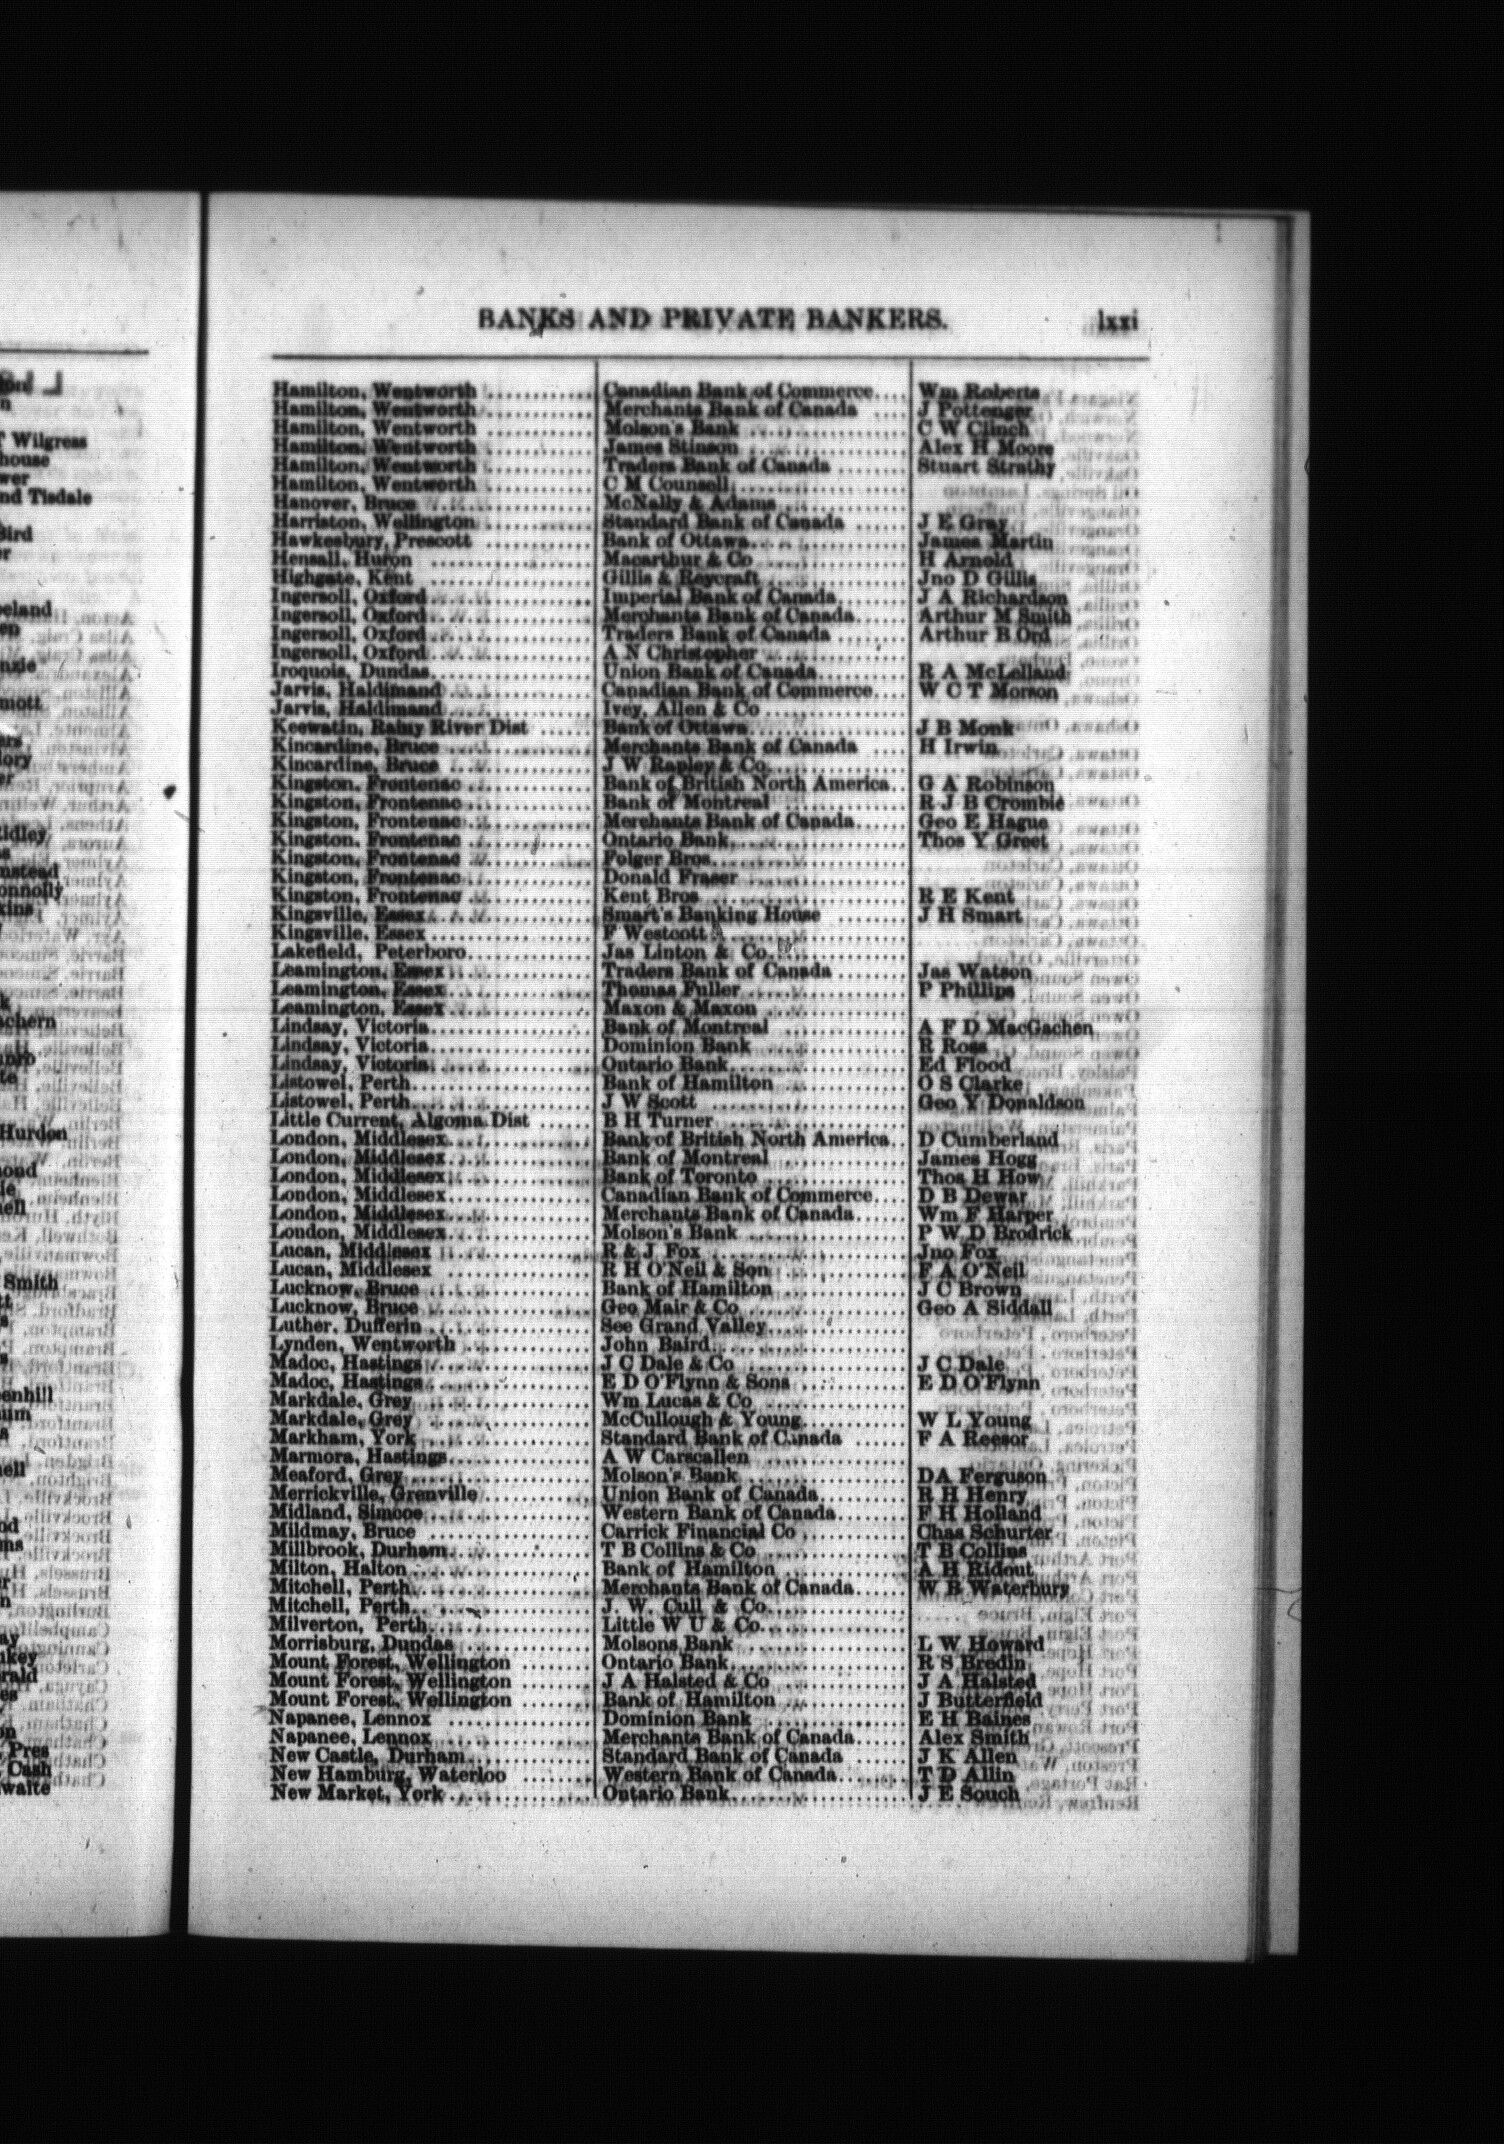 BANKS AND PRIVATE BANKERS. lxxi
Hamilton, Wentworth Canadian Bank of Commerce Wm Roberts
Hamilton, Wentworth Merchants Bank of Canada J Pottenger
Hamilton, Wentworth Molson's Bank C W Clinch
Hamilton, Wentworth James Stinson Alex H Moore
Hamilton, Wentworth Traders Bank of Canada Stuart Strathy
Hamilton, Wentworth C M Counsell
Hanover, Bruce McNally & Adams
Harriston, Wellington Standard Bank of Canada J E Gray
Hawkesbury, Prescott Bank of Ottawa James Martin
Hensall, Huron Macarthur & Co H Arnold
Highgate, Kent Gillis & Reycraft Jno D Gillis
Ingersoll, Oxford Imperial Bank of Canada J A Richardson
Ingersoll, Oxford Merchants Bank of Canada Arthur M Smith
Ingersoll, Oxford Traders Bank of Canada Arthur B Ord
Ingersoll, Oxford A N Christopher
Iroquois, Dundas Union Bank of Canada R A McLelland
Jarvis, Haldimand Canadian Bank of Commerce W C T Morson
Jarvis, Haldimand Ivey, Allen & Co
Keewatin, Rainy River Dist Bank of Ottawa J B Monk
Kincardine, Bruce Merchants Bank of Canada H Irwin
Kincardine, Bruce J W Rapley & Co
Kingston, Frontenac Bank of British North America G A Robinson
Kingston, Frontenac Bank of Montreal R J B Crombie
Kingston, Frontenac Merchants Bank of Canada Geo E Hague
Kingston, Frontenac Ontario Bank Thos Y Greet
Kingston, Frontenac Folger Bros
Kingston, Frontenac Donald Fraser
Kingston, Frontenac Kent Bros R E Kent
Kingsville, Essex Smart's Banking House J H Smart
Kingsville, Essex F Westcott
Lakefield, Peterboro Jas Linton & Co.
Leamington, Essex Traders Bank of Canada Jas Watson
Leamington, Essex Thomas Fuller P Phillips
Leamington, Essex Maxon & Maxon
Lindsay, Victoria Bank of Montreal A F D MacGachen
Lindsay, Victoria Dominion Bank R Ross
Lindsay, Victoria Ontario Bank Ed Flood
Listowel, Perth Bank of Hamilton O S Clarke
Listowel, Perth J W Scott Geo Y Donaldson
Little Current, Algoma Dist B H Turner
London, Middlesex Bank of British North America D Cumberland
London, Middlesex Bank of Montreal James Hogg
London, Middlesex Bank of Toronto Thos H How
London, Middlesex Canadian Bank of Commerce D B Dewar
London, Middlesex Merchants Bank of Canada Wm F Harper
London, Middlesex Molson's Bank P W D Brodrick
Lucan, Middlesex R & J Fox Jno Fox
Lucan, Middlesex R H O'Neil & Son F A O'Neil
Lucknow, Bruce Bank of Hamilton J C Brown
Lucknow, Bruce Geo Mair & Co Geo A Siddall
Luther, Dufferin See Grand Valley
Lynden, Wentworth John Baird
Madoc, Hastings J C Dale & Co J C Dale
Madoc, Hastings E D O'Flynn & Sons E D O'Flynn
Markdale, Grey Wm Lucas & Co
Markdale, Grey McCullough & Young W L Young
Markham, York Standard Bank of Canada F A Reesor
Marmora, Hastings A W Carscallen
Meaford, Grey Molson's Bank DA Ferguson
Merrickville, Grenville Union Bank of Canada R H Henry
Midland, Simcoe Western Bank of Canada F H Holland
Mildmay, Bruce Carrick Financial Co Chas Schurter
Millbrook, Durham T B Collins & Co T B Collins
Milton, Halton Bank of Hamilton A H Ridout
Mitchell, Perth Merchants Bank of Canada W B Waterbury
Mitchell, Perth J. W. Cull & Co
Milverton, Perth Little W U & Co.
Morrisburg, Dundas Molsons Bank L W Howard
Mount Forest, Wellington Ontario Bank R S Bredin
Mount Forest, Wellington J A Halsted & Co J A Halsted
Mount Forest, Wellington Bank of Hamilton J Butterfield
Napanee, Lennox Dominion Bank E H Baines
Napanee, Lennox Merchants Bank of Canada Alex Smith
New Castle, Durham Standard Bank of Canada J K Allen
New Hamburg, Waterloo Western Bank of Canada T D Allin
New Market, York Ontario Bank J E Souch